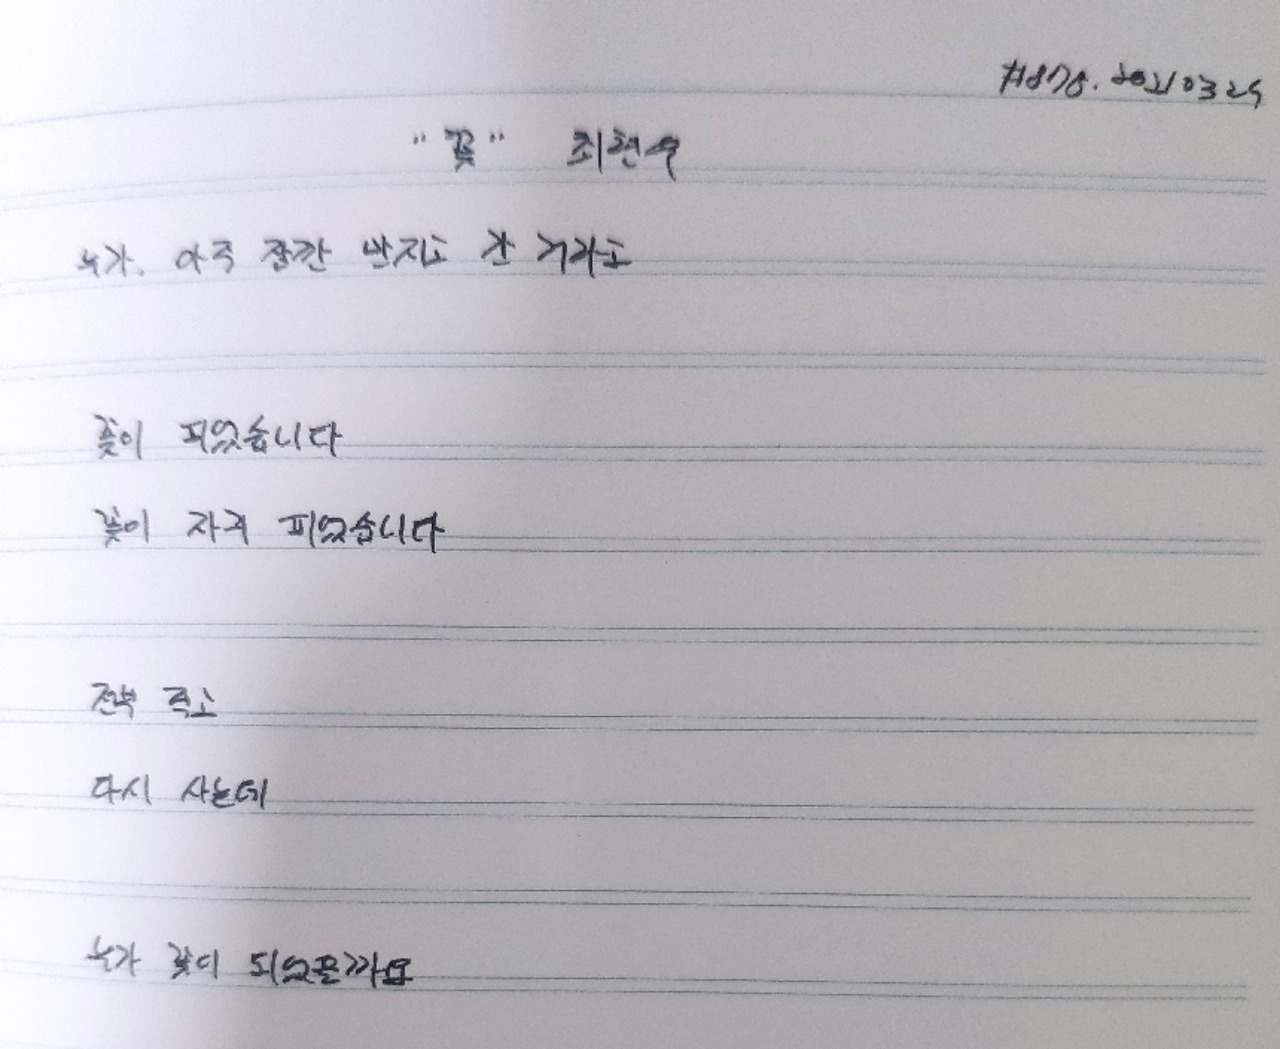 #878. 20210329
"꽃" 최현우
누가. 아주 잠깐 만지고 간 거라고
꽃이 피었습니다
꽃이 자귀 피었습니다
전부 죽고
다시 사는데
누가 꽃이 되었을까요